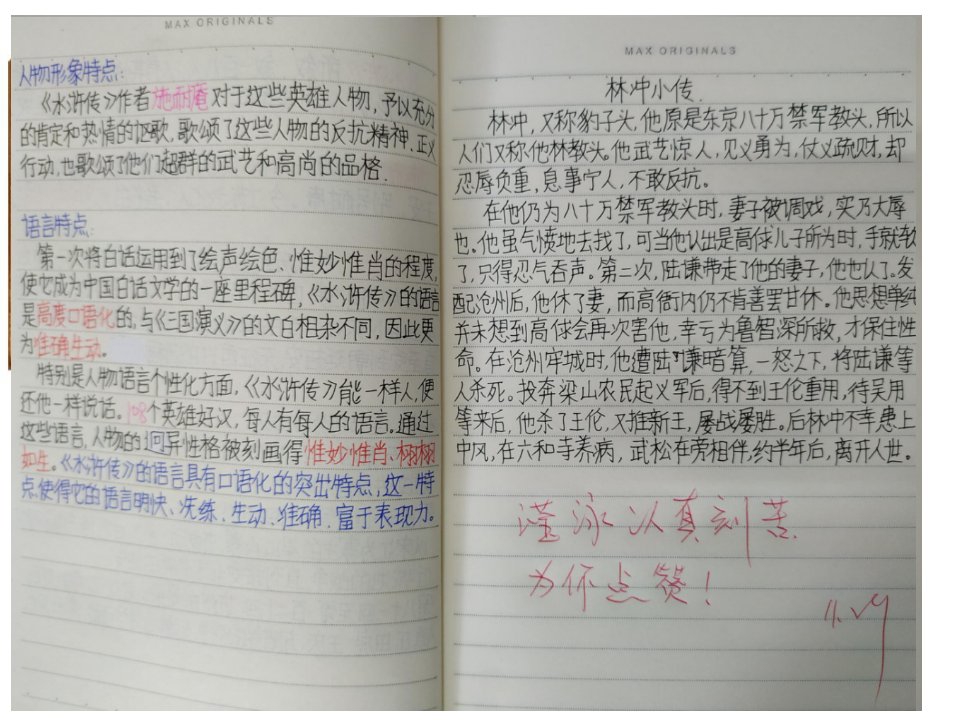 MAX ORIGINALS
人物形象特点:
《水浒传》作者施耐庵对于这些英雄人物,予以充分
的肯定和热情的讴歌,歌颂了这些人物的反抗精神、正义
行动,也歌颂了他们超群的武艺和高尚的品格.
语言特点:
第一次将白话运用到了绘声绘色、惟妙惟肖的程度,
使它成为中国白话文学的一座里程碑,《水浒传》的语言
是高度口语化的,与《三国演义》的文白相杂不同,因此更
为准确生动。
特别是人物语言个性化方面,《水浒传》能一样人,便
还他一样说话。108个英雄好汉,每人有每人的语言。通过
这些语言,人物的迥异性格被刻画得惟妙惟肖、栩栩
如生。《水浒传》的语言具有口语化的突出特点,这一特
点,使得它的语言明快、洗练、生动、准确、富于表现力。
MAX ORIGINALS
林冲小传.
林冲,又称豹子头,他原是东京八十万禁军教头,所以
人们又称他林教头。他武艺惊人,见义勇为,仗义疏财,却
忍辱负重,息事宁人,不敢反抗。
在他仍为八十万禁军教头时,妻子被调戏,实乃大辱
也。他虽气愤地去找了,可当他认出是高俅儿子所为时,手就软
了,只得忍气吞声。第二次,陆谦带走了他的妻子,他也认了。发
配沧州后,他休了妻,而高衙内仍不肯善罢甘休。他思想单纯
并未想到高俅会再次害他,幸亏为鲁智深所救,才保住性
命。在沧州牢城时,他遭陆谦暗算,一怒之下,将陆谦等
人杀死。投奔梁山农民起义军后,得不到王伦重用,待吴用
等来后,他杀了王伦,又推新王,屡战屡胜。后林冲不幸患上
中风,在六和寺养病,武松在旁相伴,约半年后,离开人世。
滢泳认真刻苦.
为你点赞!